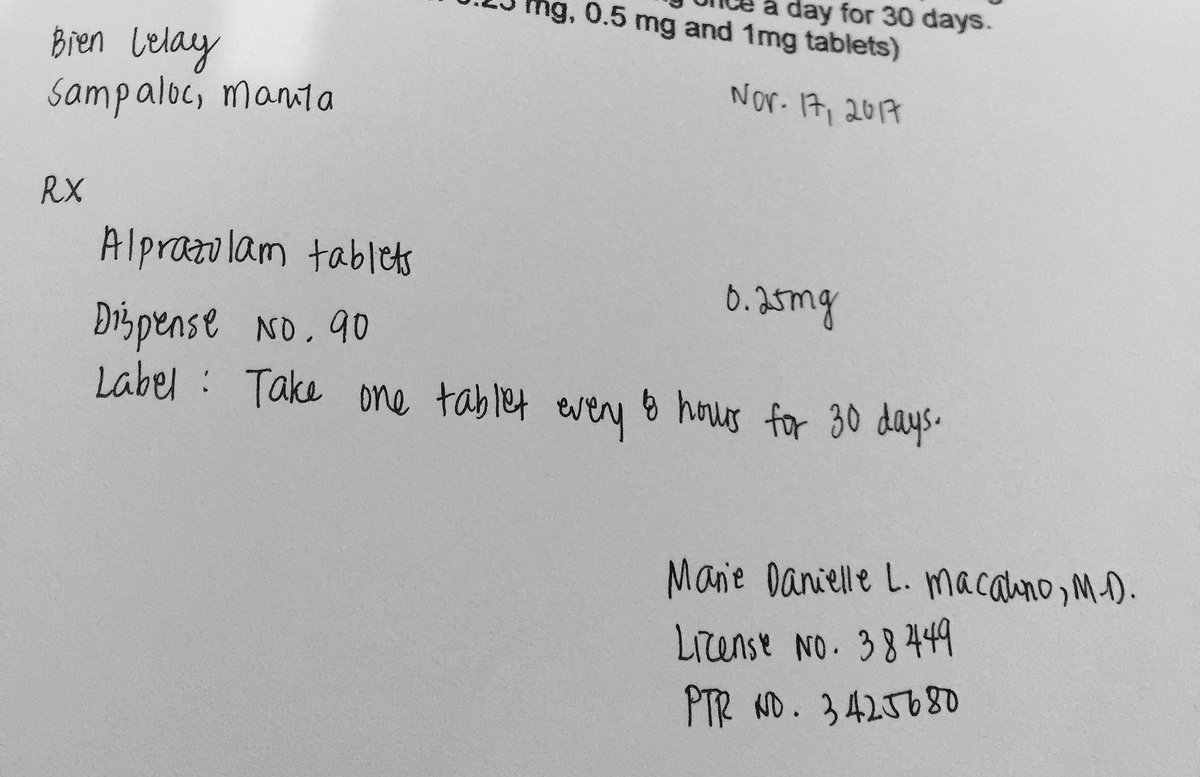 once a day for 30 days.
0.25 mg, 0.5 mg and 1mg tablets)
Bien Lelay
Sampaloc, Manila
Nov. 17, 2017
RX
Alprazolam tablets
0.25mg
Dispense NO. 90
Label : Take one tablet every 8 hours for 30 days.
Marie Danielle L. Macalino, M.D.
License NO. 38449
PTR NO. 3425680